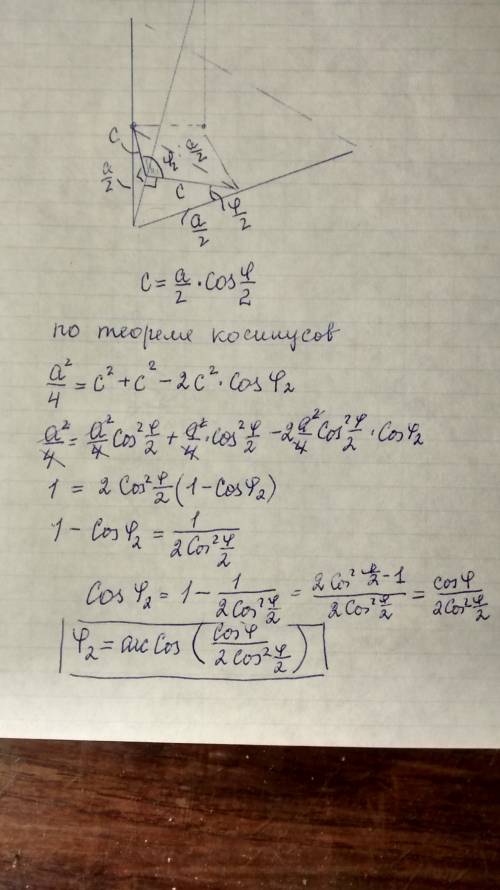 c
a/2
φ₂
a/2
c
φ/2
a/2
c = a/2 · cos φ/2
по теореме косинусов
a²/4 = c² + c² − 2c² · cos φ₂
a²/4 = a²/4 cos² φ/2 + a²/4 · cos² φ/2 − 2 a²/4 cos² φ/2 · cos φ₂
1 = 2 cos² φ/2 (1 − cos φ₂)
1 − cos φ₂ = 1/(2 cos² φ/2)
cos φ₂ = 1 − 1/(2 cos² φ/2) = (2 cos² φ/2 − 1)/(2 cos² φ/2) = cos φ/(2 cos² φ/2)
φ₂ = arc cos (cos φ/(2 cos² φ/2))